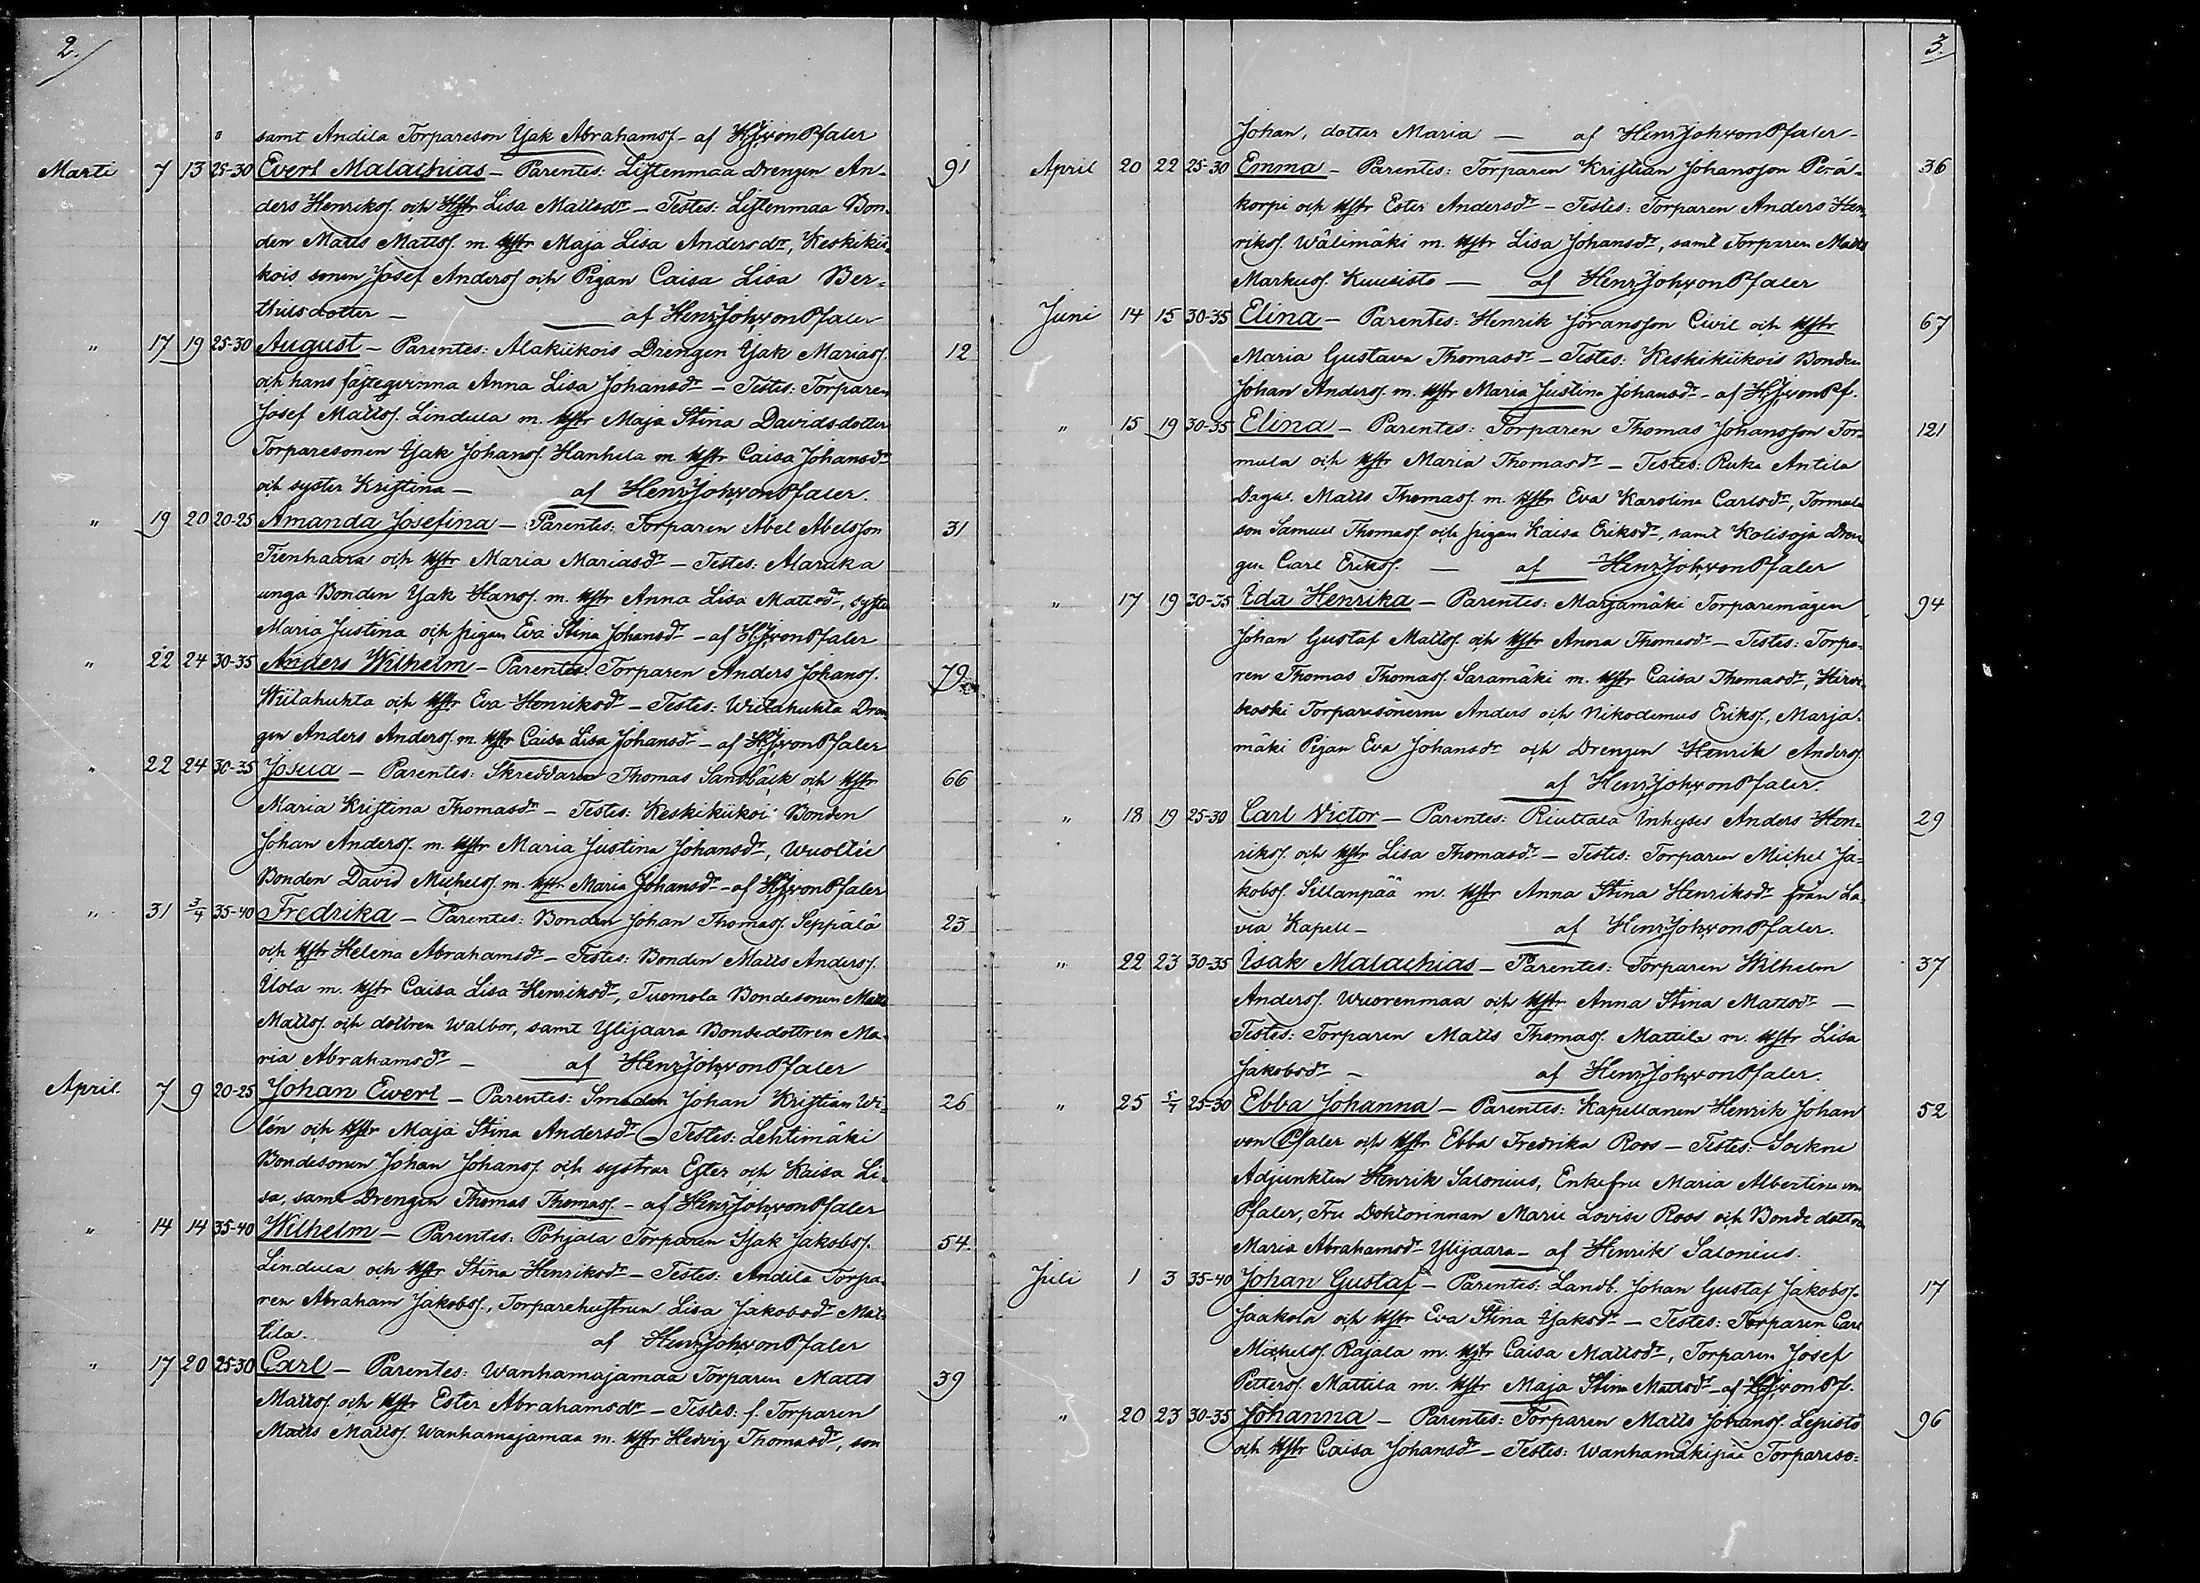 2.
samt Andila Torpareson Isak Abrahamss. - af HJvonPfaler
Marti 7 13 25-30 Evert Malachias - Parentes: Listenmaa Drengen An- 91
ders Henrikss. och hstr Lisa Mattsdr - Testes: Listenmaa Bon-
den Matts Mattss. m. hstr Maja Lisa Andersdr, Keskikii-
kois sonen Josef Anderss och Pigan Caisa Lisa Ber-
thilsdotter - af HenrJohvonPfaler
" 17 19 25-30 August - Parentes: Alakiikois Drengen Isak Mariass. 12
och hans fästeqvinna Anna Lisa Johansdr - Testes: Torparen
Josef Mattss. Lindula m. hstr Maja Stina Davidsdotter
Torparesonen Isak Johanss. Hanhela m. hstr Caisa Johansdr
och syster Kristina - af HenrJohvonPfaler.
" 19 20 20-25 Amanda Josefina - Parentes: Torparen Abel Abelsson 31
Tienhaara och hstr Maria Mariasdr - Testes: Alaruka
unga Bonden Isak Hanss. m. hstr Anna Lisa Mattsdr, syster
Maria Justina och pigan Eva Stina Johansdr - af HJvonPfaler
" 22 24 30-35 Anders Wilhelm - Parentes: Torparen Anders Johanss. 79
Wiitahuhta och hstr Eva Henriksdr - Testes: Wiitahuhta Dren-
gen Anders Anderss. m. hstr Caisa Lisa Johansdr - af HJvonPfaler
" 22 24 30-35 Josua - Parentes: Skreddaren Thomas Sandbäck och hstr 66
Maria Kristina Thomasdr - Testes: Keskikiikoi Bonden
Johan Anderss. m. hstr Maria Justina Johansdr, Wuoltee
Bonden David Michelss. m. hstr Maria Johansdr - af HJvonPfaler
" 31 3/4 35-40 Fredrika - Parentes: Bonden Johan Thomass. Seppälä 23
och hstr Helena Abrahamsdr - Testes: Bonden Matts Anderss.
Uola m. hstr Caisa Lisa Henriksdr, Tuomola Bondesonen Matts
Mattss. och dottren Walbor, samt Ylijaara Bondedottren Ma-
ria Abrahamsdr - af HenrJohvonPfaler
April 7 9 20-25 Johan Ewert - Parentes: Smeden Johan Kristian Wi- 26
lén och hstr Maja Stina Andersdr - Testes: Lehtimäki
Bondesonen Johan Johanss. och systrar Ester och Kaisa Li-
sa, samt Drengen Thomas Thomass. - af HenrJohvonPfaler
" 14 14 35-40 Wilhelm - Parentes: Pohjala Torparen Isak Jakobss. 54.
Lindula och hstr Stina Henriksdr - Testes: Andila Torpa-
ren Abraham Jakobss., Torparehustrun Lisa Jakobsdr Mat-
tila. af HenrJohvonPfaler
" 17 20 25-30 Carl - Parentes: Wanhamajamaa Torparen Matts 39
Mattss. och hstr Ester Abrahamsdr - Testes: f. Torparen
Matts Mattss. Wanhamajamaa m. hstr Hedvig Thomasdr, son
3.
Johan, dotter Maria - af HenrJohvonPfaler -
April 20 22 25-30 Emma - Parentes: Torparen Kristian Johansson Perä- 36
korpi och hstr Ester Andersdr - Testes: Torparen Anders Hen-
rikss. Wälimäki m. hstr Lisa Johansdr, samt Torparen Matts
Markuss. Kuusisto - af HenrJohvonPfaler
Juni 14 15 30-35 Elina - Parentes: Henrik Jöransson Civil och hstr 67
Maria Gustava Thomasdr - Testes: Keskikiikois Bonden
Johan Anderss. m. hstr Maria Justina Johansdr - af HJvonPf.
" 15 19 30-35 Elina - Parentes: Torparen Thomas Johansson Tor- 121
mula och hstr Maria Thomasdr - Testes: Ruka Antila
Dagw. Matts Thomass. m. hstr Eva Karolina Carlsdr, Tormula
son Samuel Thomass. och pigan Kaisa Eriksdr, samt Kolisoja Dren-
gen Carl Erikss. - af HenrJohvonPfaler
" 17 19 30-35 Ida Henrika - Parentes: Marjamäki Torparemågen 94
Johan Gustaf Mattss. och hstr Anna Thomasdr - Testes: Torpa-
ren Thomas Thomass. Saramäki m. hstr Caisa Thomasdr, Hirvi-
koski Torparesönerne Anders och Nikodemus Erikss., Marja-
mäki Pigan Eva Johansdr och Drengen Henrik Anderss.
af HenrJohvonPfaler.
" 18 19 25-30 Carl Victor - Parentes: Riuttala Inhyses Anders Hen- 29
rikss. och hstr Lisa Thomasdr - Testes: Torparen Michel Ja-
kobss. Sillanpää m. hstr Anna Stina Henriksdr från La-
via Kapell - af HenrJohvonPfaler.
" 22 23 30-35 Isak Malachias - Parentes: Torparen Wilhelm 37
Anderss. Wuorenmaa och hstr Anna Stina Mattsdr -
Testes: Torparen Matts Thomass. Mattila m. hstr Lisa
Jakobsdr - af HenrJohvonPfaler.
" 25 5/7 25-30 Ebba Johanna - Parentes: Kapellanen Henrik Johan 52
von Pfaler och hstr Ebba Fredrika Roos - Testes: Sockne
Adjunkten Henrik Salonius, Enkefru Maria Albertina von
Pfaler, Fru Doktorinnan Marie Lovise Roos och Bondedottren
Maria Abrahamsdr Ylijaara - af Henrik Salonius.
Juli 1 3 35-40 Johan Gustaf - Parentes: Landb. Johan Gustaf Jakobss. 17
Jaakola och hstr Eva Stina Isaksdr - Testes: Torparen Carl
Michelss. Rajala m. hstr Caisa Mattsdr, Torparen Josef
Petterss. Mattila m. hstr Maja Stina Mattsdr - af HJvonPf.
" 20 23 30-35 Johanna - Parentes: Torparen Matts Johanss. Lepistö 96
och hstr Caisa Johansdr - Testes: Wanhamäkipää Torpareso-